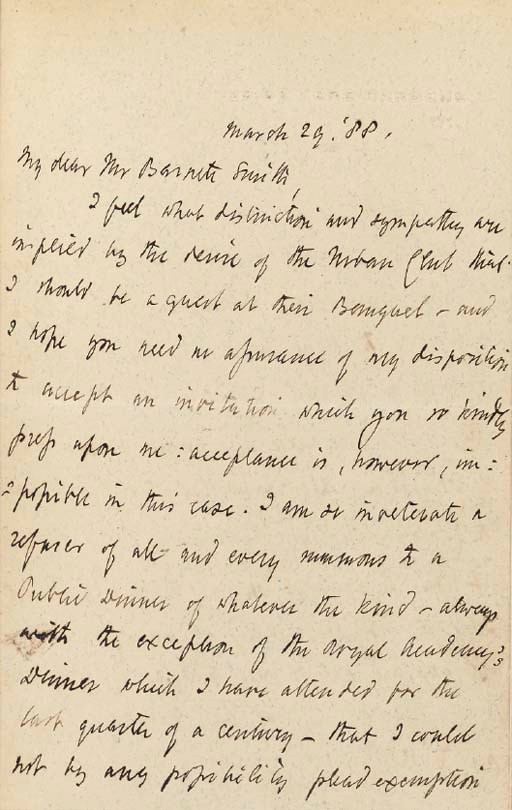 March 29. '88.
My dear Mr Barnett Smith,
I feel what distinction and sympathy are
implied by the desire of the Urban Club that
I should be a guest at their Banquet – and
I hope you need no assurance of my disposition
to accept an invitation which you so kindly
press upon me : acceptance is, however, im:
:possible in this case. I am so inveterate a
refuser of all and every summons to a
Public Dinner of whatever the kind – always
with the exception of the Royal Academy's
Dinner which I have attended for the
last quarter of a century – that I could
not by any possibility plead exemption